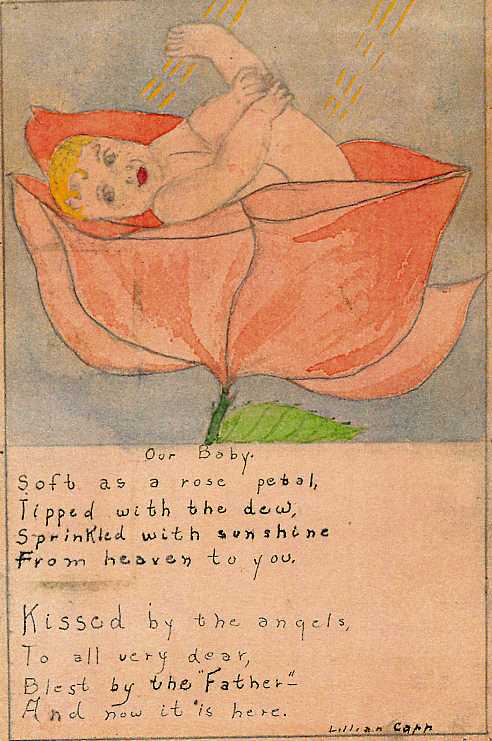 Our Baby.
Soft as a rose petal,
Tipped with the dew,
Sprinkled with sunshine
From heaven to you.
Kissed by the angels,
To all very dear,
Blest by the "Father"-
And now it is here.
Lillian Capp